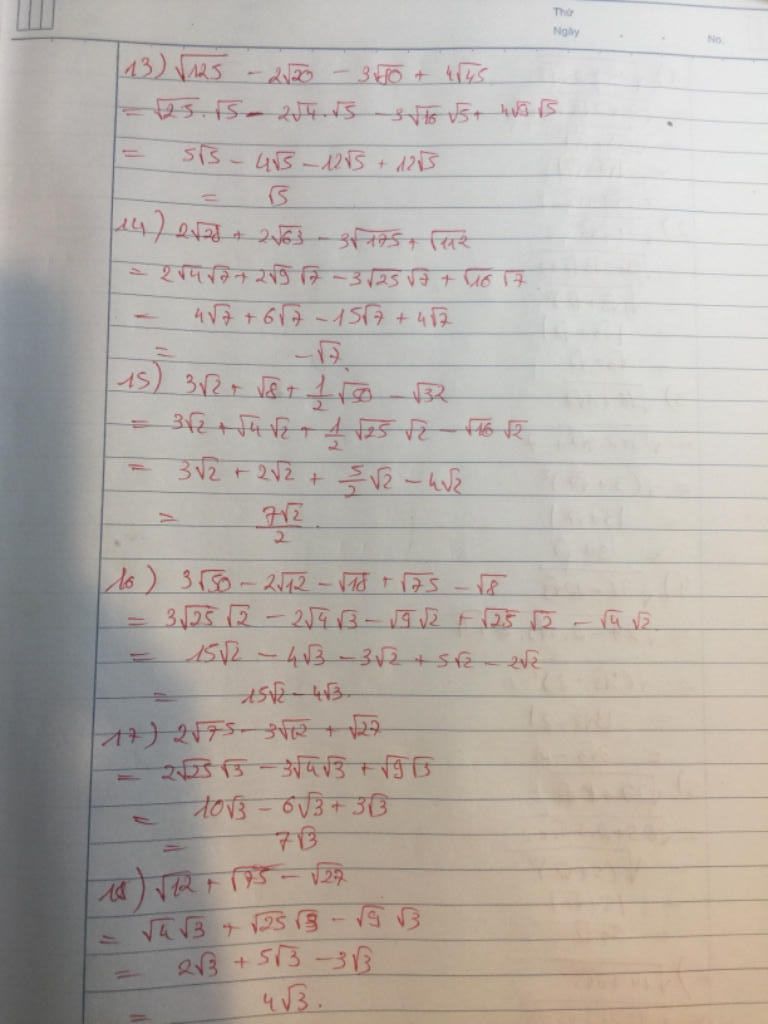 Thứ
Ngày . . No.
13) √125 - 2√20 - 3√80 + 4√45
= √25 . √5 - 2√4 . √5 - 3√16 √5 + 4√9 √5
= 5√5 - 4√5 - 12√5 + 12√5
= √5
14) 2√28 + 2√63 - 3√175 + √112
= 2√4 √7 + 2√9 √7 - 3√25 √7 + √16 √7
= 4√7 + 6√7 - 15√7 + 4√7
= -√7.
15) 3√2 + √8 + 1/2 √50 - √32
= 3√2 + √4 √2 + 1/2 √25 √2 - √16 √2
= 3√2 + 2√2 + 5/2 √2 - 4√2
= 7√2/2 .
16) 3√50 - 2√12 - √18 + √75 - √8
= 3√25 √2 - 2√4 √3 - √9 √2 + √25 √2 - √4 √2
= 15√2 - 4√3 - 3√2 + 5√2 - 2√2
= 15√2 - 4√3.
17) 2√75 - 3√12 + √27
= 2√25 √3 - 3√4 √3 + √9 √3
= 10√3 - 6√3 + 3√3
= 7√3
18) √12 + √75 - √27
= √4 √3 + √25 √3 - √9 √3
= 2√3 + 5√3 - 3√3
= 4√3.